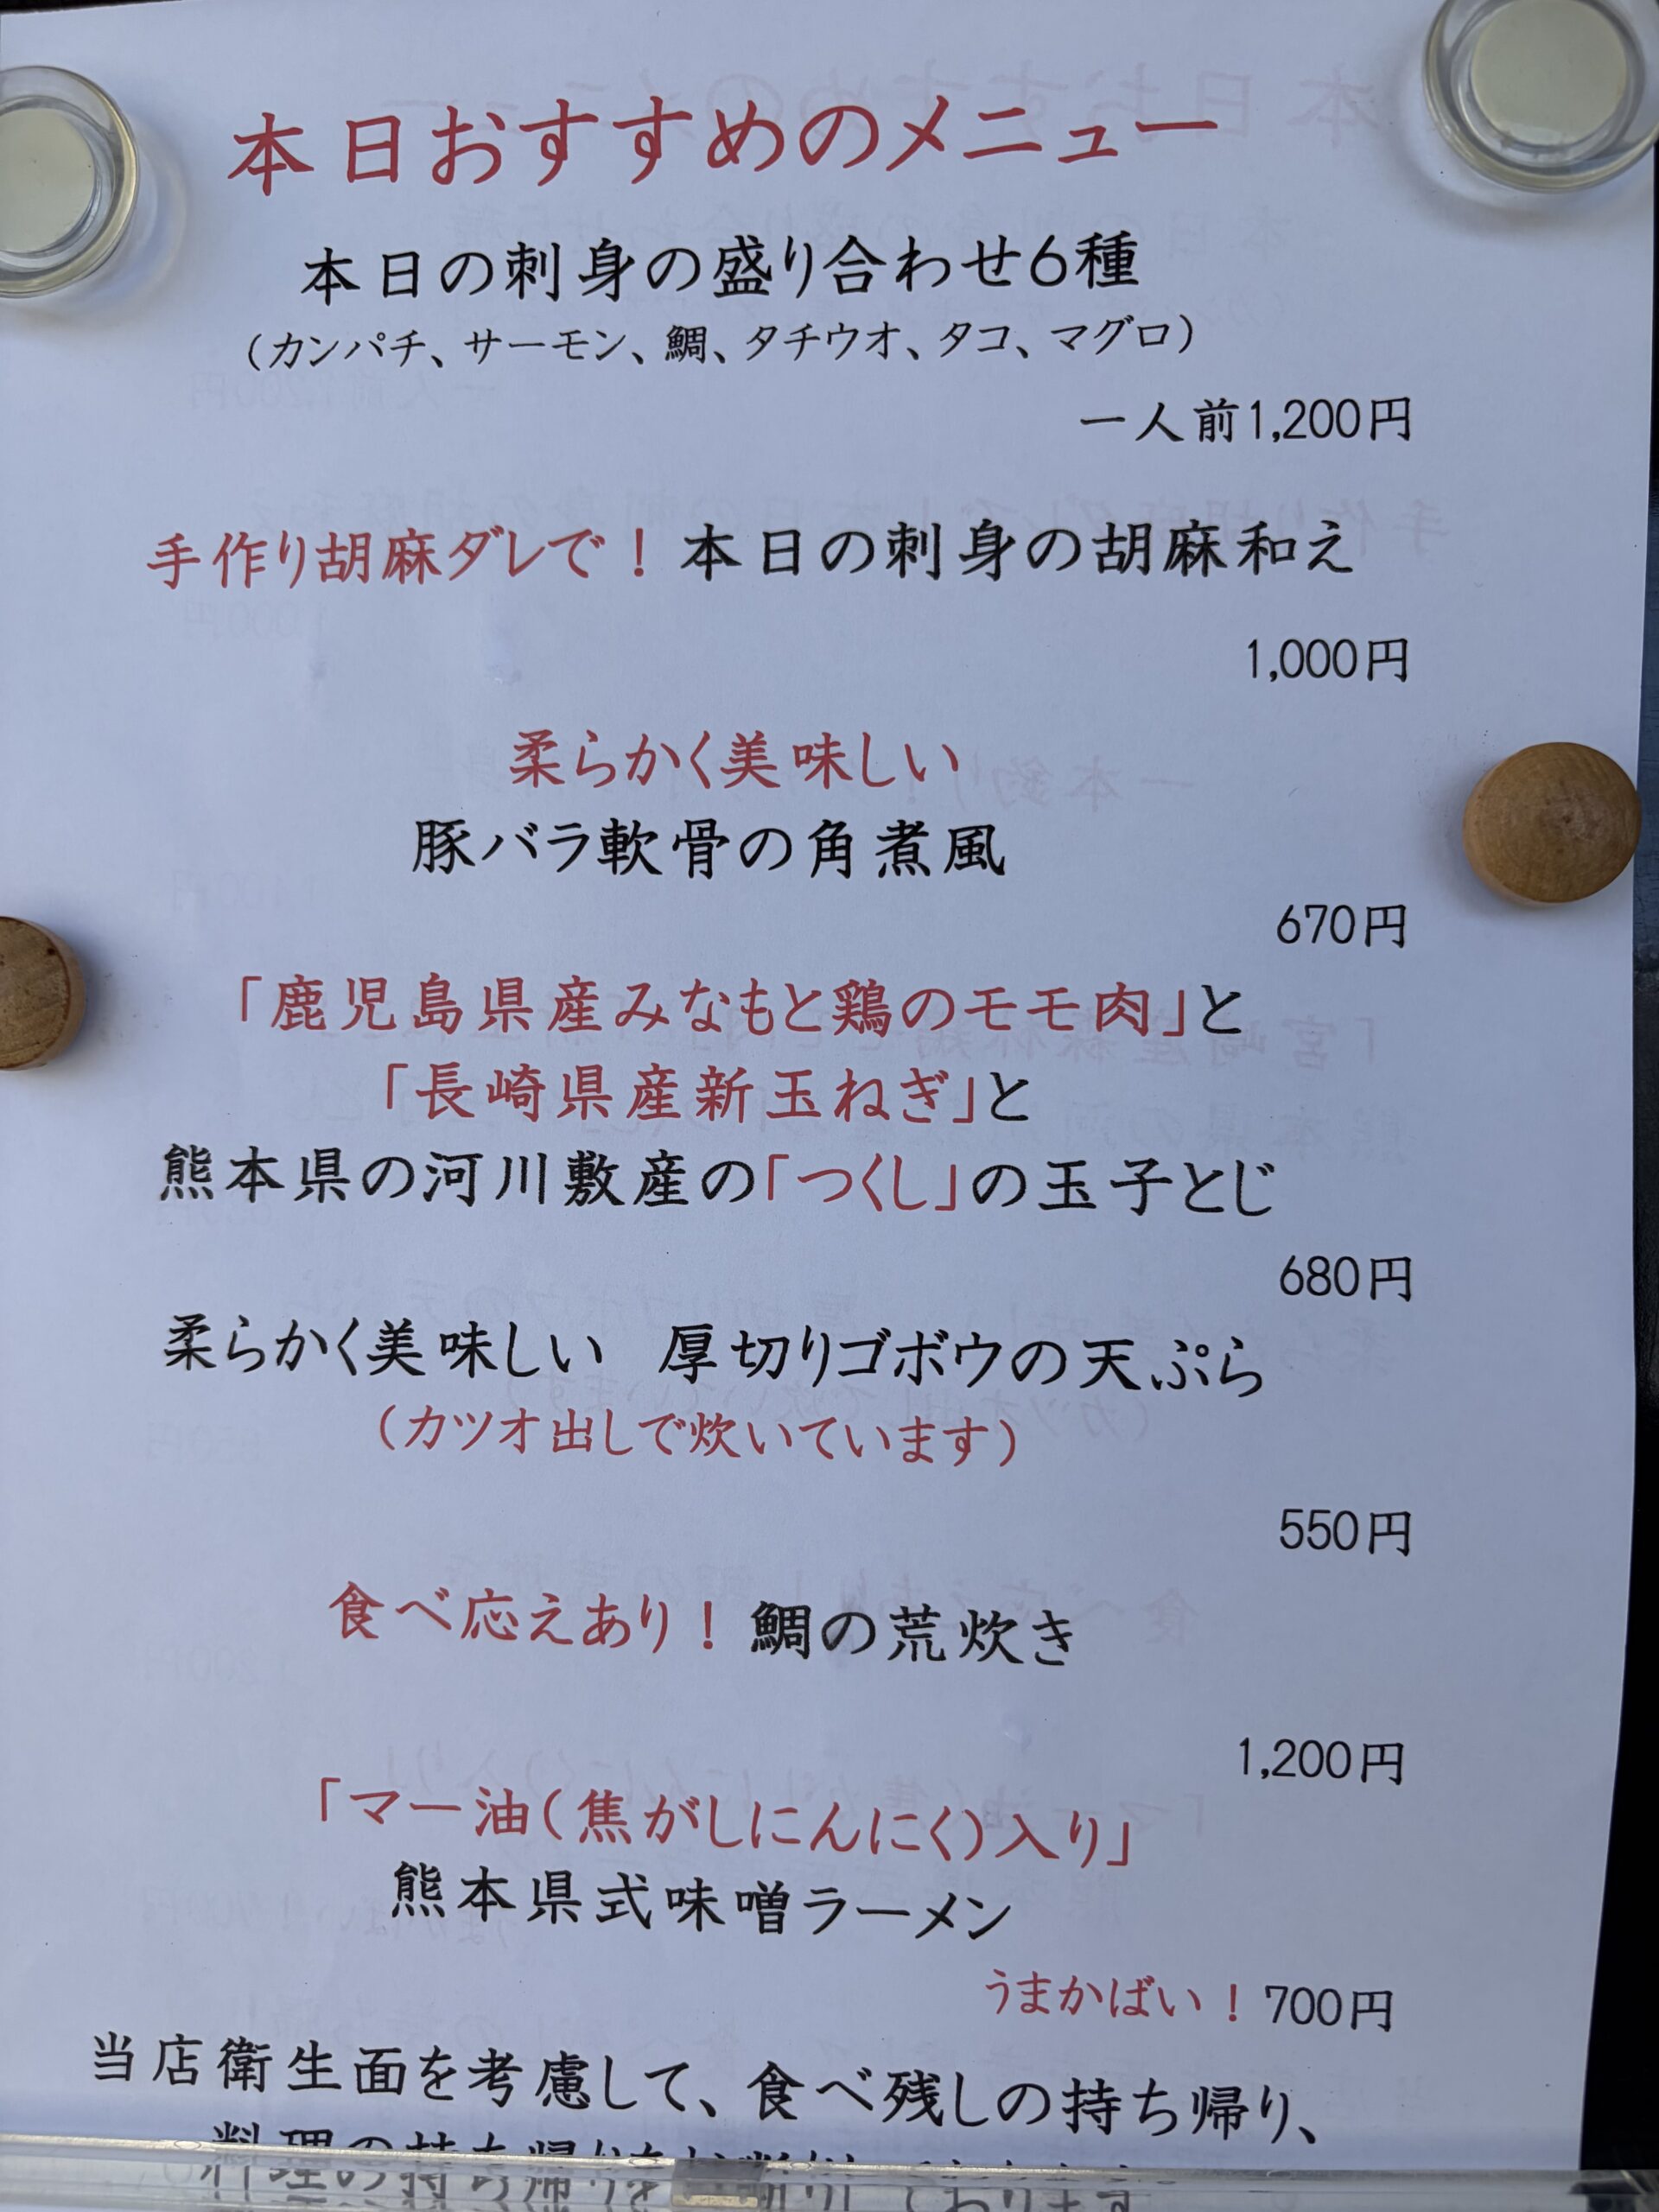 本日おすすめのメニュー
本日の刺身の盛り合わせ6種
（カンパチ、サーモン、鯛、タチウオ、タコ、マグロ）
一人前1,200円
手作り胡麻ダレで！本日の刺身の胡麻和え
1,000円
柔らかく美味しい
豚バラ軟骨の角煮風
670円
「鹿児島県産みなもと鶏のモモ肉」と
「長崎県産新玉ねぎ」と
熊本県の河川敷産の「つくし」の玉子とじ
680円
柔らかく美味しい 厚切りゴボウの天ぷら
（カツオ出しで炊いています）
550円
食べ応えあり！鯛の荒炊き
1,200円
「マー油（焦がしにんにく）入り」
熊本県式味噌ラーメン
うまかばい！700円
当店衛生面を考慮して、食べ残しの持ち帰り、
料理の持ち帰りをお断りしております